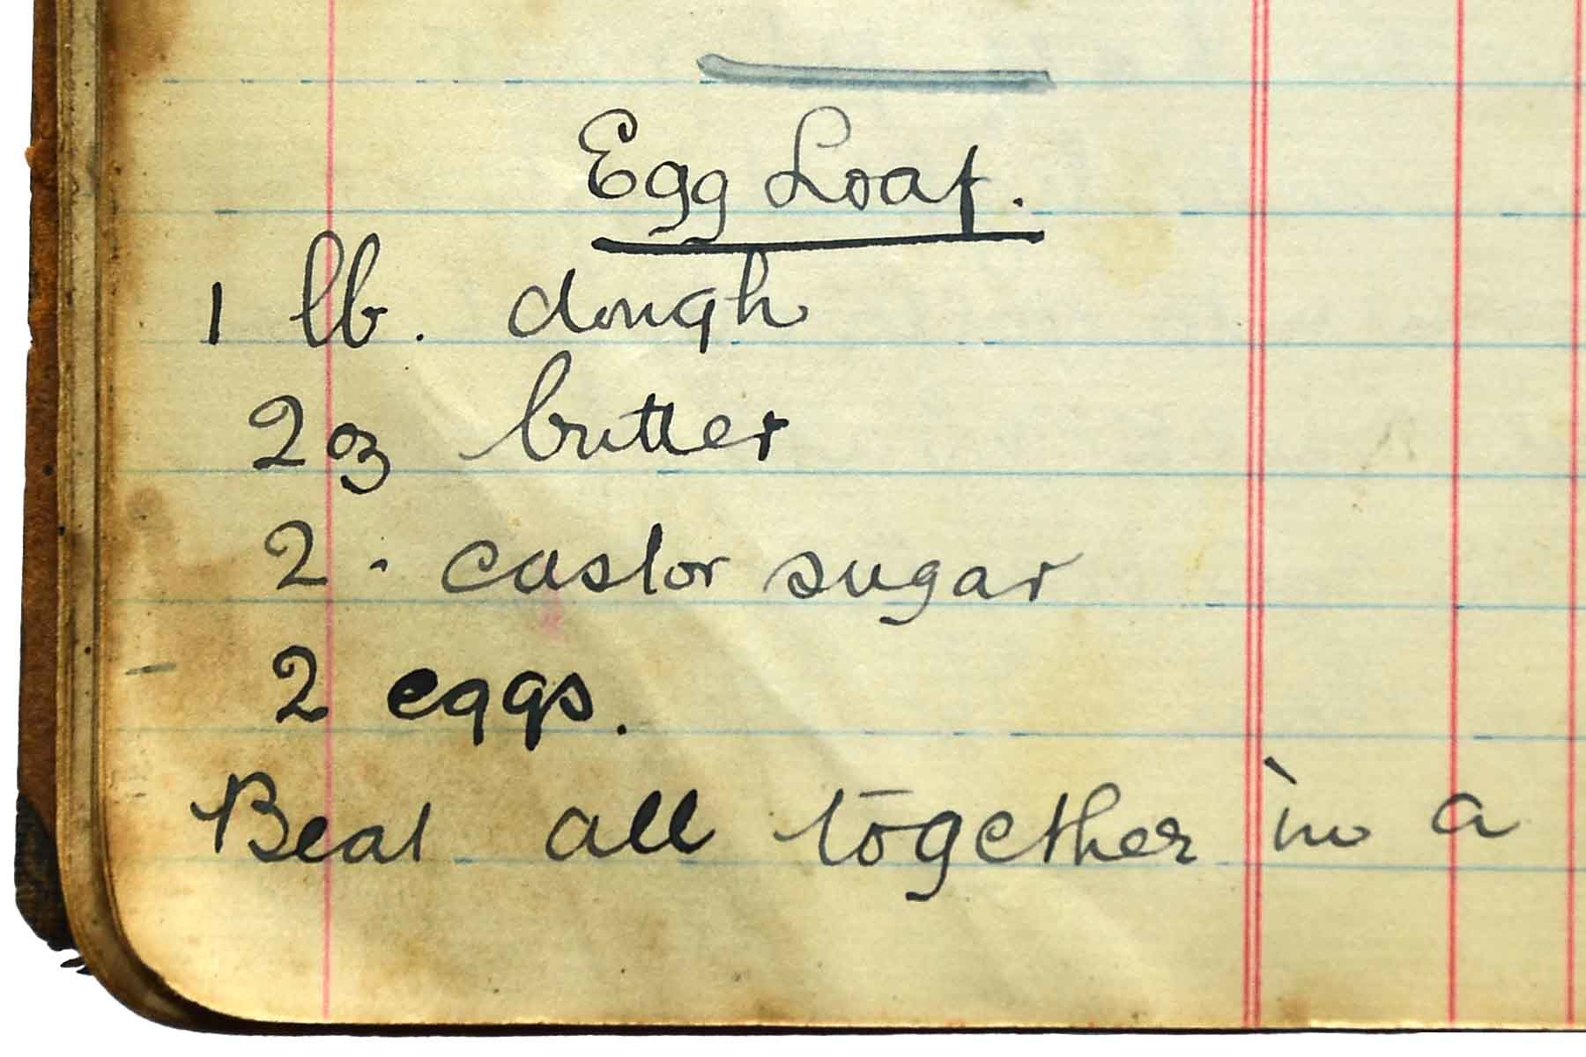 Egg Loaf.
1 lb. dough
2 oz butter
2 . castor sugar
2 eggs.
Beat all together in a